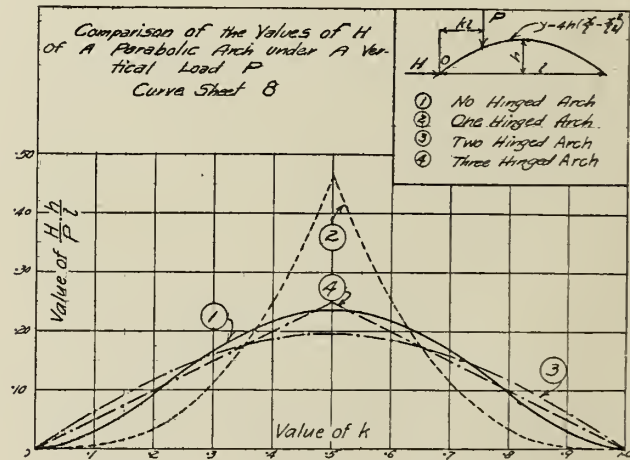 Comparison of the Values of H
of A Parabolic Arch under A Ver-
tical Load P
Curve Sheet 8
kl
P
H
O
h
l
① No Hinged Arch
② One Hinged Arch
③ Two Hinged Arch
④ Three Hinged Arch
Value of H/P h/l
.50
.40
.30
.20
.10
0
.1
.2
.3
.4
.5
.6
.7
.8
.9
1.0
Value of k
①
②
③
④